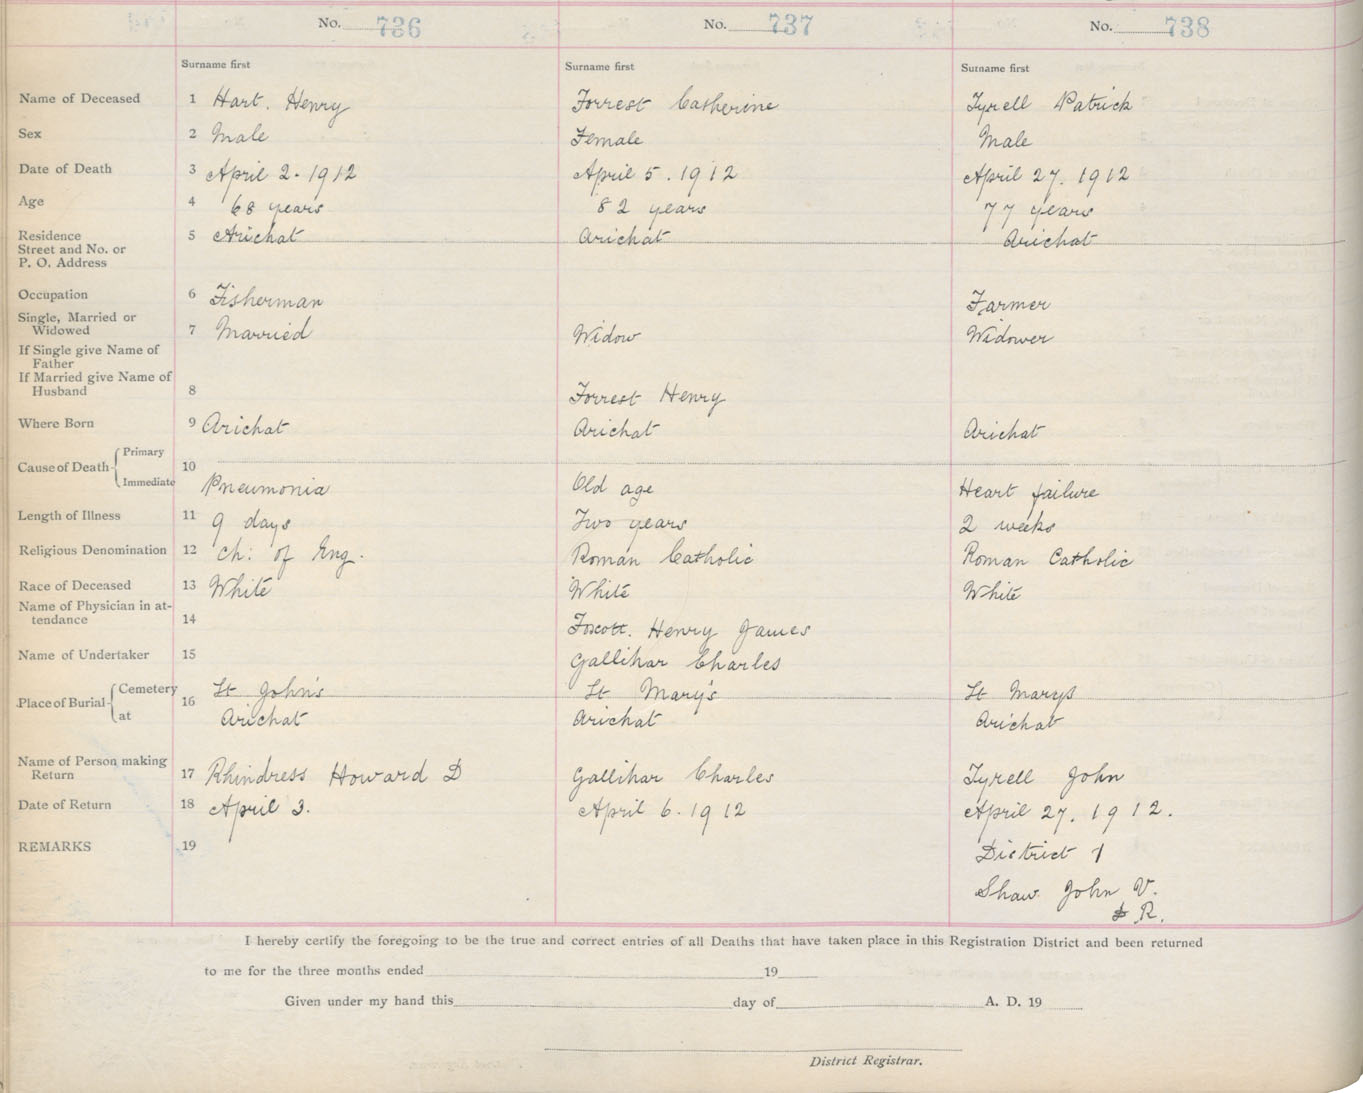 No. 736 No. 737 No. 738
Surname first Surname first Surname first
Name of Deceased 1 Hart. Henry Forrest Catherine Tyrell Patrick
Sex 2 Male Female Male
Date of Death 3 April 2. 1912 April 5. 1912 April 27. 1912
Age 4 68 years 82 years 77 years
Residence 5 Arichat Arichat Arichat
Street and No. or
P. O. Address
Occupation 6 Fisherman Farmer
Single, Married or
Widowed 7 Married Widow Widower
If Single give Name of
Father
If Married give Name of
Husband 8 Forrest Henry
Where Born 9 Arichat Arichat Arichat
Primary
Cause of Death 10
Immediate Pneumonia Old age Heart failure
Length of Illness 11 9 days Two years 2 weeks
Religious Denomination 12 Ch: of Eng. Roman Catholic Roman Catholic
Race of Deceased 13 White White White
Name of Physician in at-
tendance 14 Henry James
Name of Undertaker 15 Gallihar Charles
Cemetery St John's St Mary's St Marys
Place of Burial 16
at Arichat Arichat Arichat
Name of Person making
Return 17 Rhindress Howard D Gallihar Charles Tyrell John
Date of Return 18 April 3. April 6. 1912 April 27. 1912.
REMARKS 19 District 1
Shaw John V.
D.R.
I hereby certify the foregoing to be the true and correct entries of all Deaths that have taken place in this Registration District and been returned
to me for the three months ended 19
Given under my hand this day of A. D. 19
District Registrar.